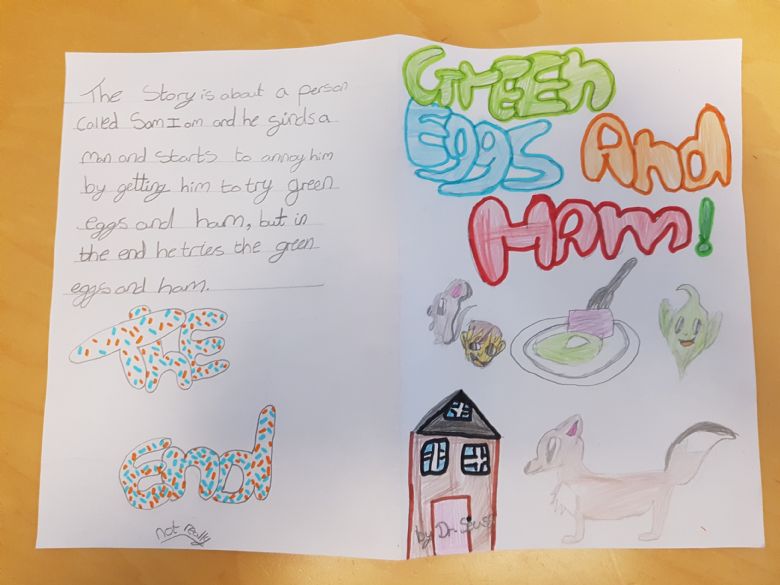 The Story is about a person
called Sam I am and he finds a
man and starts to annoy him
by getting him to try green
eggs and ham, but in
the end he tries the green
eggs and ham.
THE
End
not really
GrEEn
Eggs And
Ham!
by Dr. Seuss